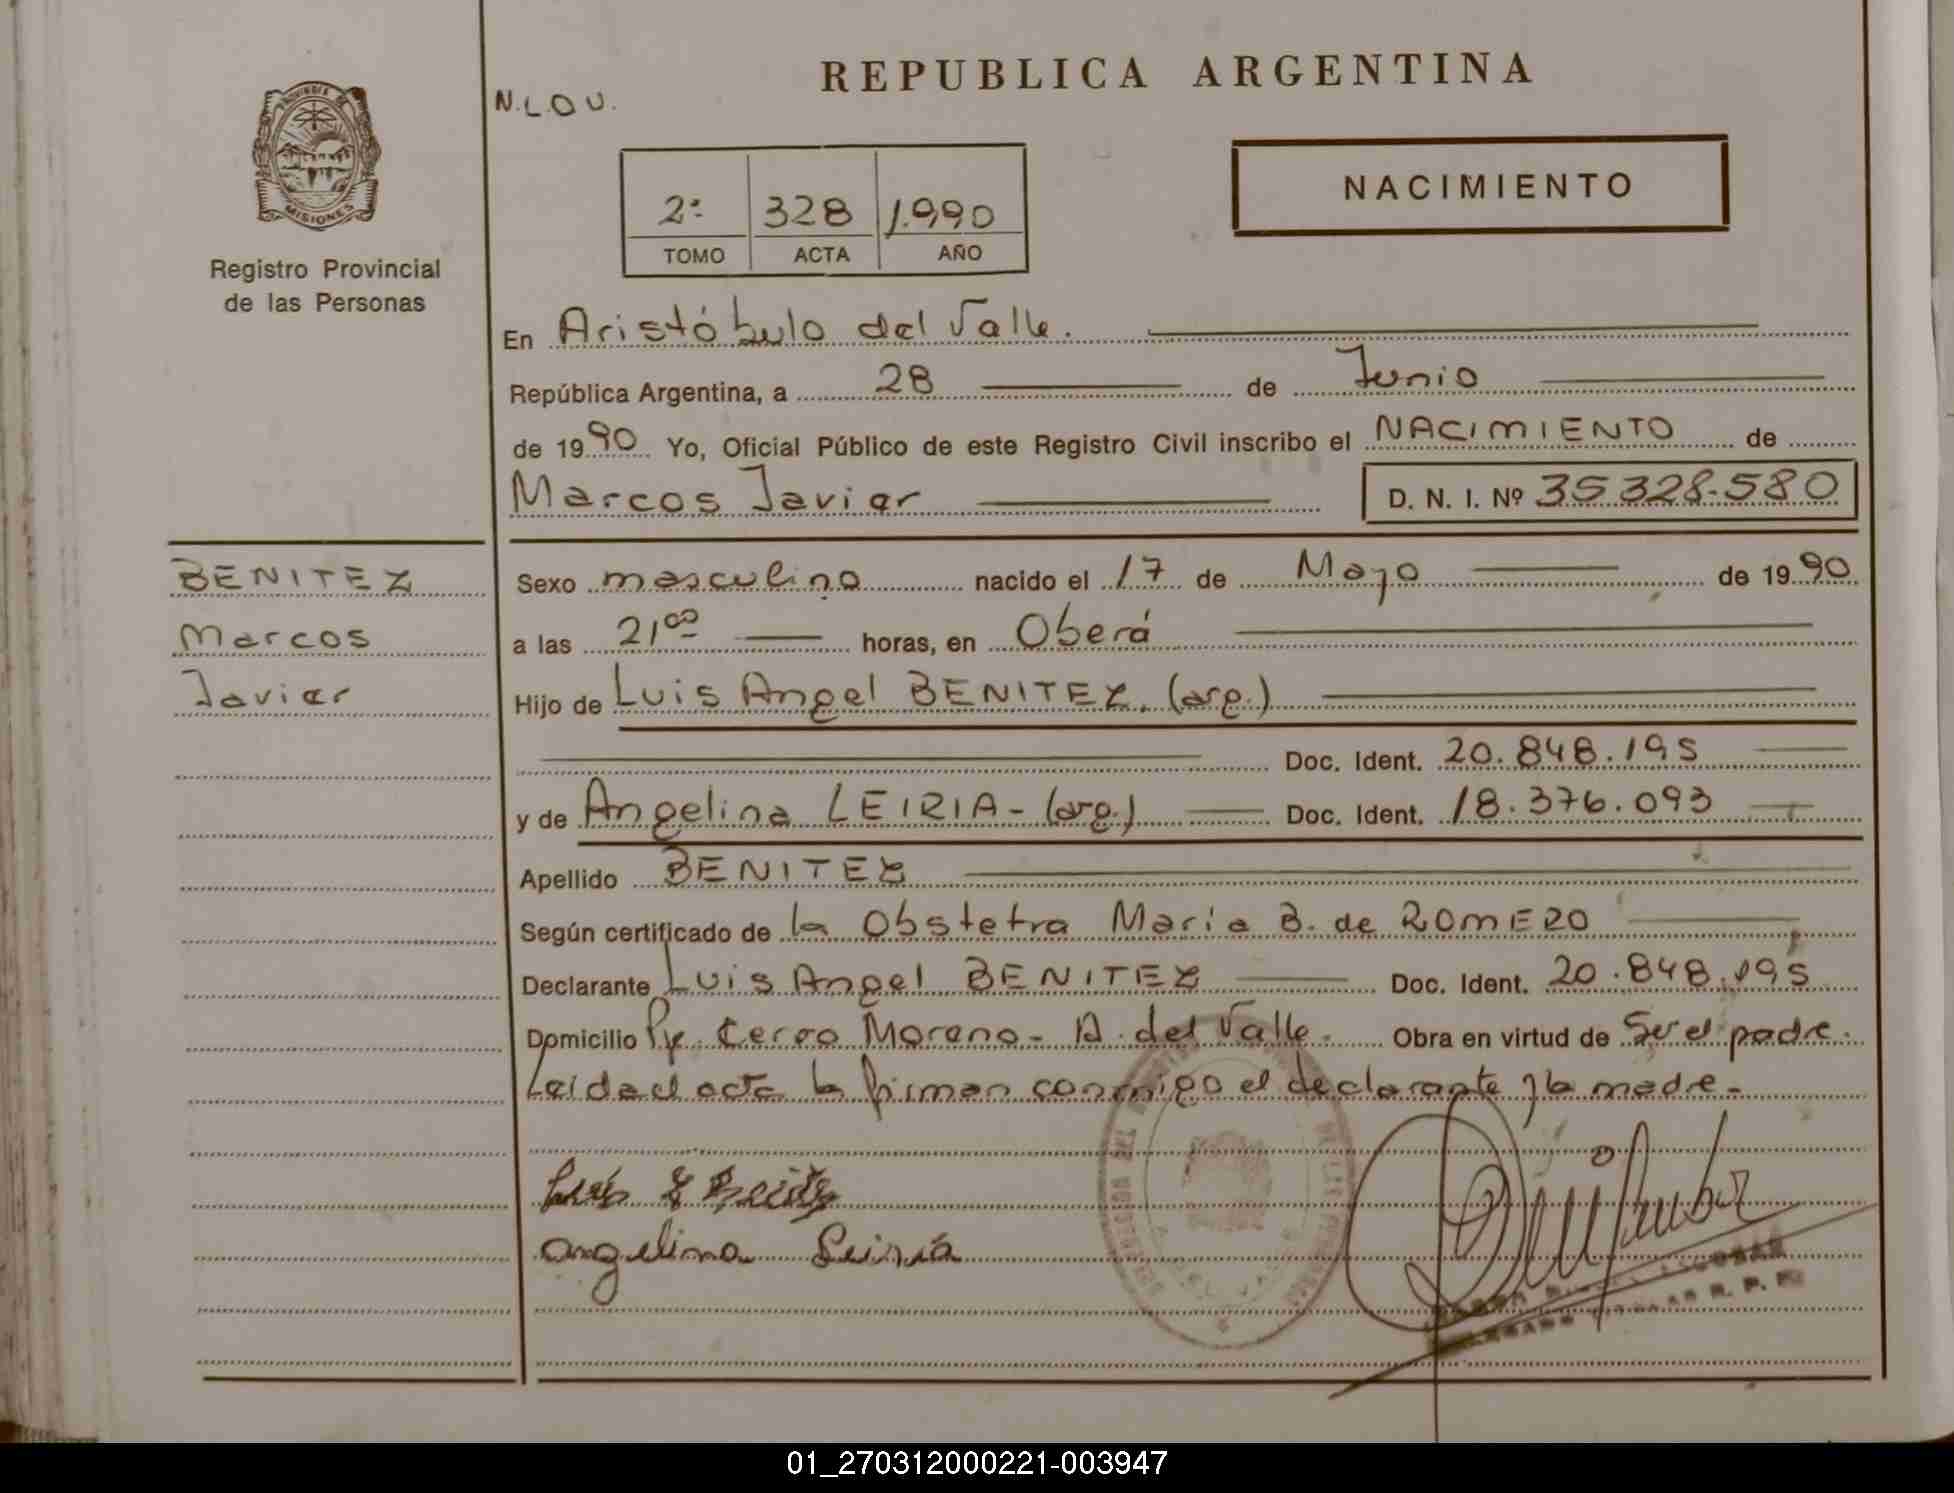 REPUBLICA ARGENTINA
N.L.O.U.
PROVINCIA DE
MISIONES
Registro Provincial
de las Personas
2º 328 1.990
TOMO ACTA AÑO
NACIMIENTO
En Aristóbulo del Valle.
República Argentina, a 28 de Junio
de 1990 Yo, Oficial Público de este Registro Civil inscribo el NACIMIENTO de
Marcos Javier D. N. I. Nº 35.328.580
BENITEZ
Marcos
Javier
Sexo masculino nacido el 17 de Mayo de 1990
a las 21⁰⁰ horas, en Oberá
Hijo de Luis Angel BENITEZ. (arg.)
Doc. Ident. 20.848.195
y de Angelina LEIRIA - (arg.) Doc. Ident. 18.376.093
Apellido BENITEZ
Según certificado de la Obstetra Maria B. de ROMERO
Declarante Luis Angel BENITEZ Doc. Ident. 20.848.195
Domicilio Pje. Cerro Moreno - A. del Valle. Obra en virtud de Ser el padre.
Leida el acta la firman conmigo el declarante y la madre -
Angelina Leiria
R. P. P.
01_270312000221-003947